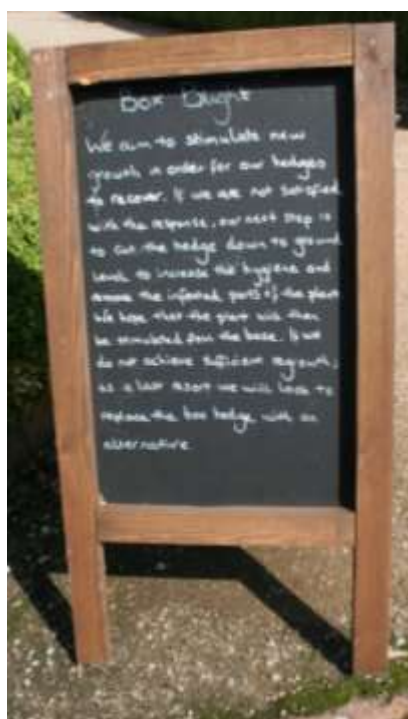 Box Blight
We aim to stimulate new
growth in order for our hedges
to recover. If we are not satisfied
with the response, our next step is
to cut the hedge down to ground
level to increase the hygiene and
remove the infected parts of the plant
We hope that the plant will then
be stimulated from the base. If we
do not achieve sufficient regrowth,
as a last resort we will look to
replace the box hedge with an
alternative.